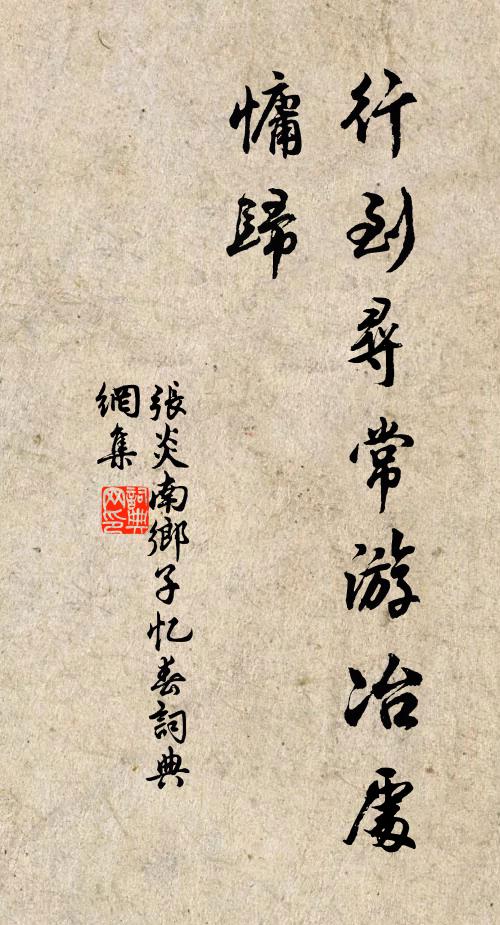 行到尋常游冶處
慵歸
張炎南鄉子忆春詞典
網集
詞典
网印